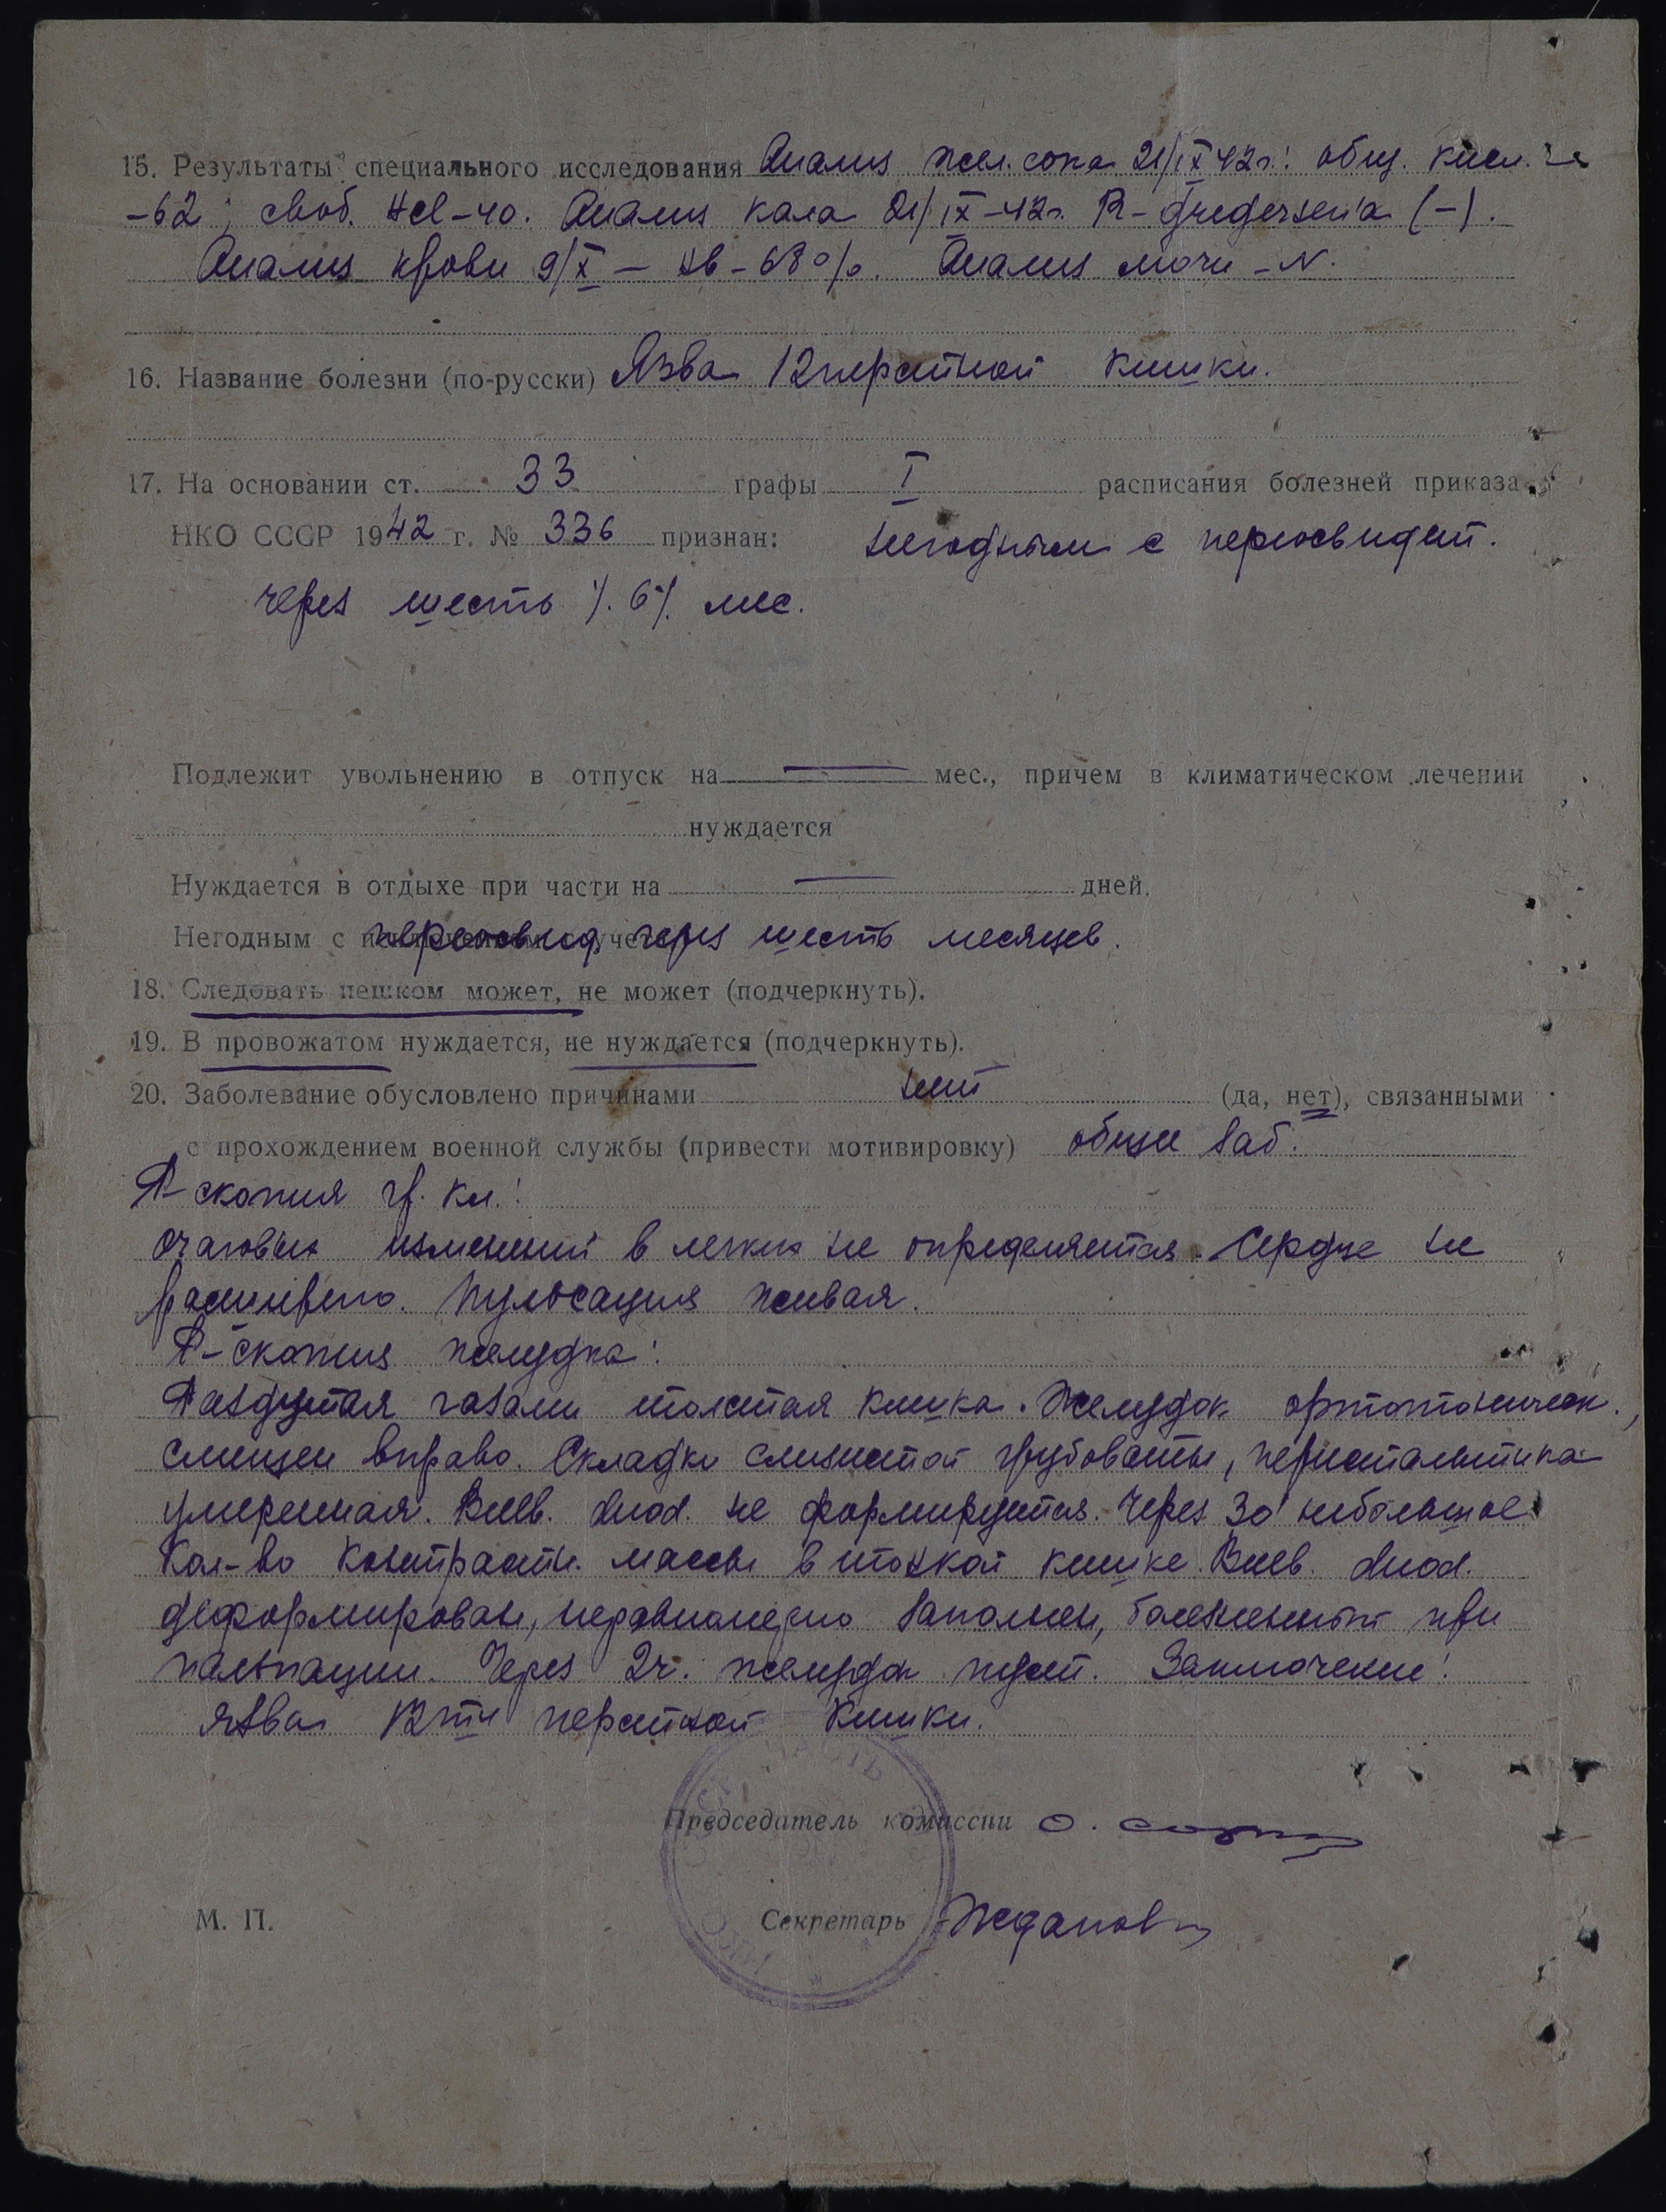 15. Результаты специального исследования Анализ жел. сока 21/IX 42 г.: общ. кисл.
-62; своб. HCl-40. Анализ кала 21/IX-42 г. R-gregersen'a (-).
Анализ крови 9/X — Hb-68%. Анализ мочи -N.
16. Название болезни (по-русски) Язва 12перстной кишки.
17. На основании ст. 33 графы I расписания болезней приказа
НКО СССР 1942 г. № 336 признан: негодным с переосвидет.
через шесть /.6/. мес.
Подлежит увольнению в отпуск на — мес., причем в климатическом лечении
нуждается
Нуждается в отдыхе при части на — дней.
Негодным с переосвид. через шесть месяцев.
18. Следовать пешком может, не может (подчеркнуть).
19. В провожатом нуждается, не нуждается (подчеркнуть).
20. Заболевание обусловлено причинами нет (да, нет), связанными
с прохождением военной службы (привести мотивировку) общее заб.
R-скопия гр. кл.:
очаговых изменений в легких не определяется. Сердце не
расширено. Пульсация живая.
R-скопия желудка:
Раздутая газами толстая кишка. Желудок ортотоническ.,
смещен вправо. Складки слизистой грубоваты, перистальтика
умеренная. Bulb. duod. не формируется. Через 30' небольшое
кол-во контрастн. массы в тонкой кишке. Bulb. duod.
деформирован, неравномерно заполнен, болезнен при
пальпации. Через 2 ч. желудок пуст. Заключение:
язва 12ти перстной кишки.
Председатель комиссии
М. П.
Секретарь Жданов
НКО